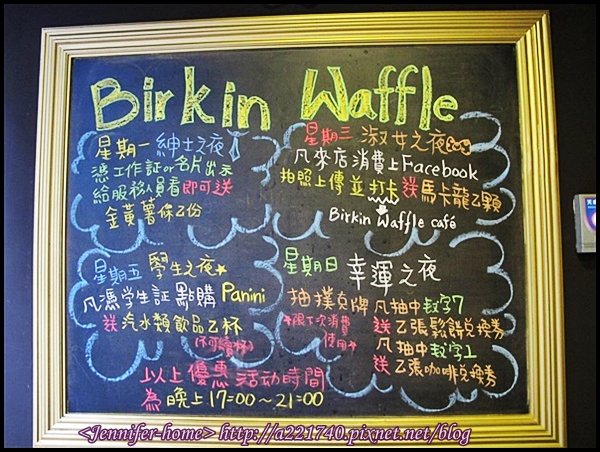 Birkin Waffle
星期一 紳士之夜
憑工作証or名片出示
給服務人員看即可送
金黃薯條乙份
星期三 淑女之夜
凡來店消費上Facebook
拍照上傳並打卡送馬卡龍乙顆
Birkin Waffle café
星期五 學生之夜
凡憑學生証點購Panini
送汽水類飲品乙杯
(不可續杯)
星期日 幸運之夜
抽撲克牌 凡抽中數字7
送乙張鬆餅兌換劵
*限下次消費使用*
凡抽中數字1
送乙張咖啡兌換劵
以上優惠活动時間
為晚上17:00~21:00
<Jennifer-home> http://a221740.pixnet.net/blog